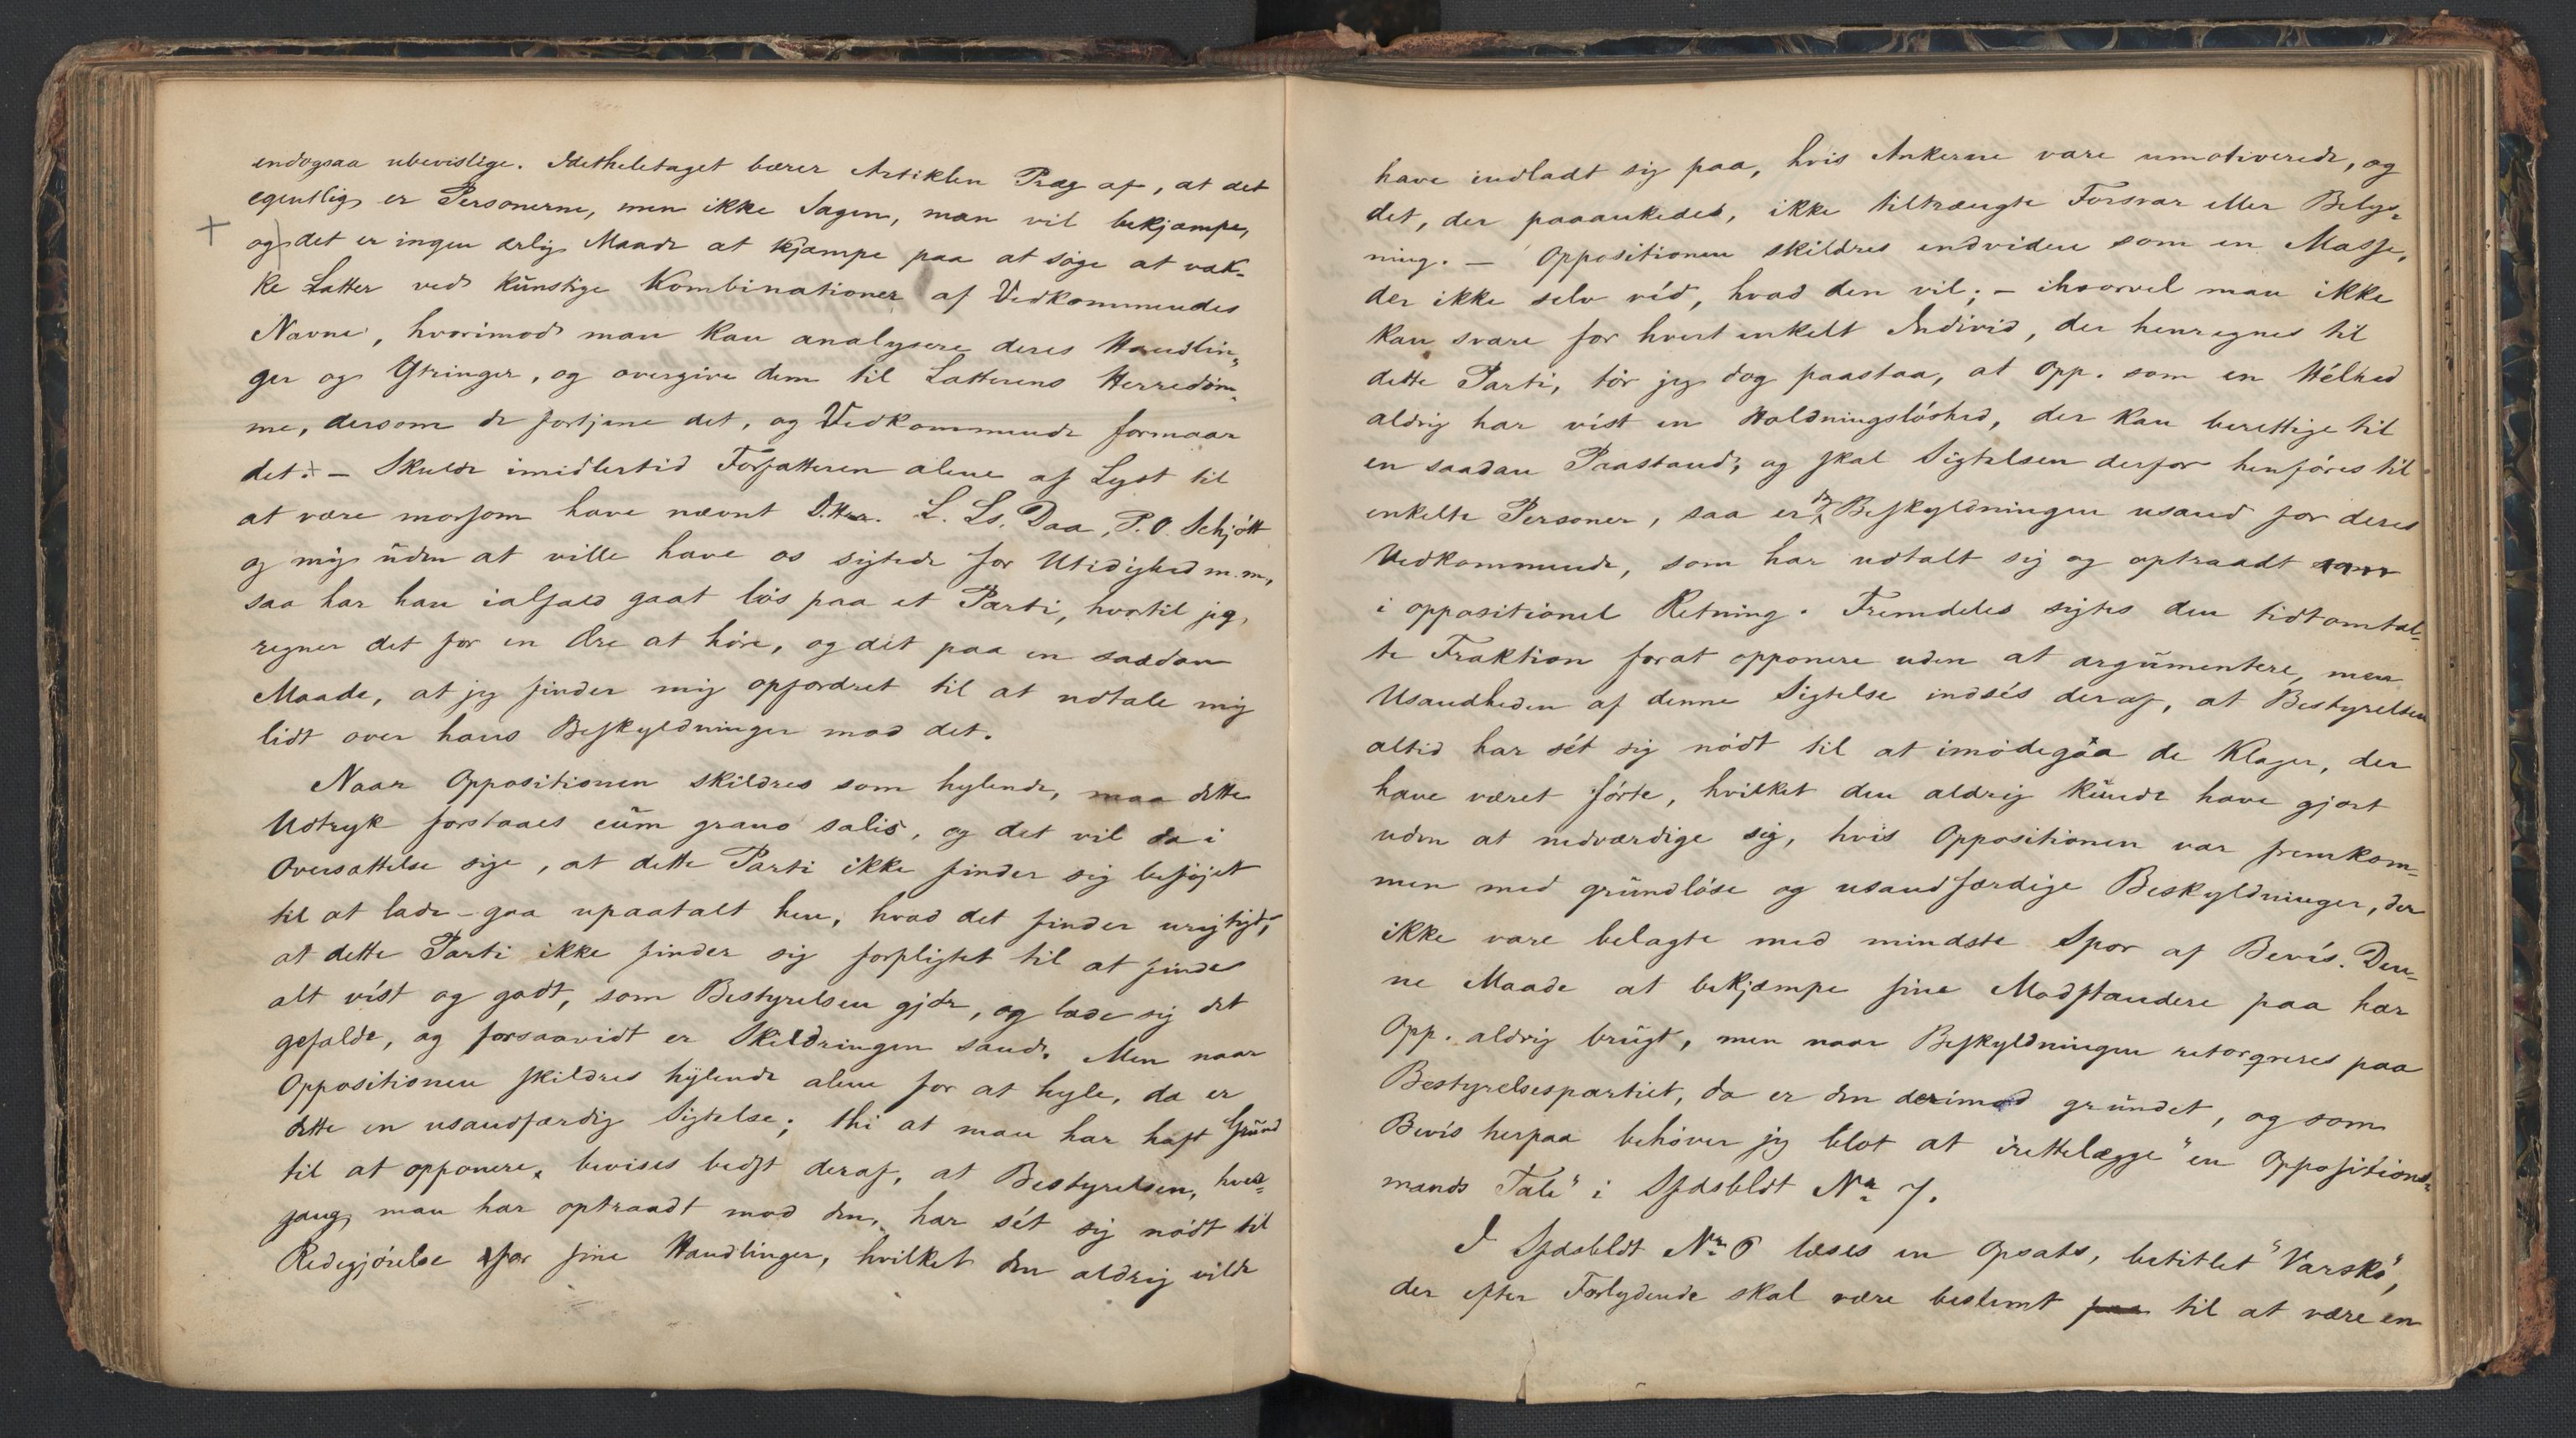 endogsaa ubevislige. Idetheletaget bærer Artiklen Præg af, at det
egentlig er Personerne, men ikke Sagen, man vil bekjæmpe,
+ og det er ingen ærlig Maade at kjæmpe paa at söge at væk-
ke Latter ved künstige Kombinationer af Vedkommendes
Navne, hvorimod man kan analysere deres Handlin-
ger og Ytringer, og overgive dem til Latterens Herredöm-
me, dersom de fortjene det, og Vedkommende formaar
det.+ - Skulde imidlertid Forfatteren alene af Lyst til
at være morsom have nævnt D.Hrr. L. Ls. Daa, P. O. Schjött
og mig üden at ville have os sigtede for Utidighed m.m,
saa har han ialfald gaat lös paa et Parti, hvortil jeg
regner det for en Ære at höre, og det paa en saadan
Maade, at jeg finder mig opfordret til at udtale mig
lidt over hans Beskyldninger mod det.
Naar Oppositionen skildres som hylende, maa dette
Udtryk forstaaes cüm grano salis, og det vil da i
Oversættelse sige, at dette Parti ikke finder sig beföjet
til at lade gaa upaatalt hen, hvad det finder urigtigt,
at dette Parti ikke finder sig forpligtet til at finde
alt vist og godt, som Bestyrelsen gjör, og lade sig det
gefalde, og forsaavidt er Skildringen sand. Men naar
Oppositionen skildres hylende alene for at hyle, da er
dette en usandfærdig Sigtelse; thi at man har haft Gründ
til at opponere, bevises bedst deraf, at Bestyrelsen, hver-
gang man har optraadt mod den, har sét sig nödt til
Redegjörelse for sine Handlinger, hvilket den aldrig vilde
have indladt sig paa, hvis Ankerne vare umotiverede, og
det, der paaankedes, ikke tiltrængte Forsvar eller Belys-
ning. - Oppositionen skildres endvidere som en Masse,
der ikke selv véd, hvad den vil; - ihvorvel man ikke
kan svare for hvert enkelt Individ, der henregnes til
dette Parti, tör jeg dog paastaa, at Opp. som en Hélhed
aldrig har vist en Holdningslöshed, der kan berettige til
en saadan Paastand, og skal Sigtelsen derfor henföres til
enkelte Personer, saa er Beskyldningen usand for deres
Vedkommende, som har udtalt sig og optraadt som
i oppositionel Retning. Fremdeles sigtes den tidtomtal-
te Fraktion forat opponere uden at argümentere, men
Usandheden af denne Sigtelse indsés deraf, at Bestyrelsen
altid har sét sig nödt til at imödegaa de Klager, der
have været förte, hvilket den aldrig künde have gjort
uden at nedværdige sig, hvis Oppositionen var fremkom-
men med gründlöse og usandfærdige Beskyldninger, der
ikke vare belagte med mindste Spor af Bevis. Den-
ne Maade at bekjæmpe sine Modstandere paa har
Opp. aldrig brügt, men naar Beskyldningen retorqveres paa
Bestyrelsespartiet, da er den derimod gründet, og som
Bevis herpaa behöver jeg blot at irettelægge "en Oppositions-
mands Tale" i Sfdsbldt No 7.
I Sfdsbldt No 6 læses en Opsats, betitlet "Varsko",
der efter Forlydende skal være bestemt paa til at være en